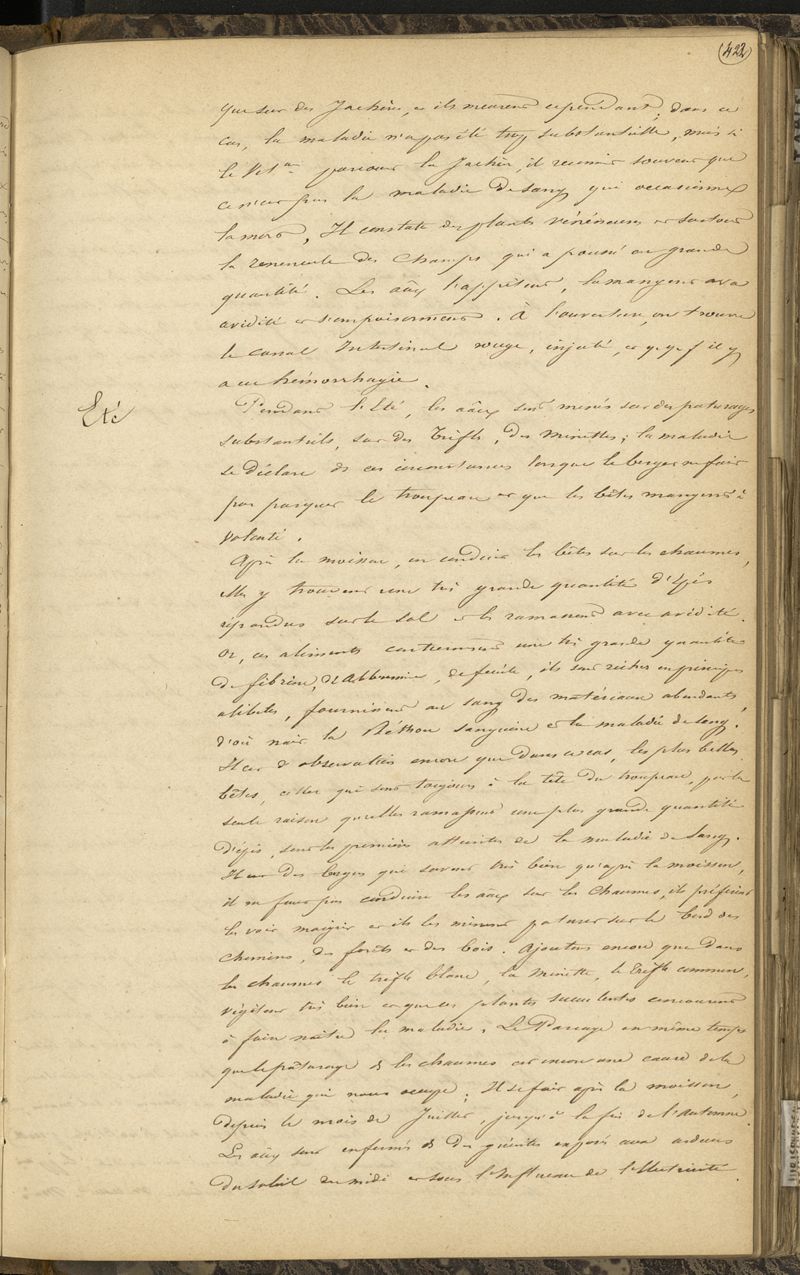 422
que sur des Jachères, et ils meurent cependant; dans ce
cas, la maladie n'a pas été trop substantielle, mais si
le Vét.re parcourt la Jachère, il reconnait souvent que
ce n'est pas la maladie de sang qui occasionne
la mort, Il constate des plantes vénéneuses et surtout
la renoncule des Champs qui a poussé en grande
quantité. Les aaux l'appètent, la mangent avec
avidité et s'empoisonnent. À l'ouverture, on trouve
le canal Intestinal rouge, injecté, et qq f il y
a eu hémorrhagie.
Eté
Pendant l'Eté, les aaux sont menés sur des paturages
substantiels, sur des Trèfles, des Minettes; la maladie
se déclare ds ces circonstances lorsque le berger ne fait
pas parquer le troupeau et que les bêtes mangent à
volonté.
Après la moisson, on conduit les bêtes sur les chaumes,
elles y trouvent une très grande quantité d'Epis
répandus sur le sol et les ramassent avec avidité.
Or, ces aliments contiennent une très grande quantité
de fibrine, d'Albumine, de fécule, ils sont riches en principes
alibiles, fournissent au sang des matériaux abondants,
d'où nait la Pléthore sanguine et la maladie de sang.
Il est d'observation encore que dans ce cas, les plus belles
bêtes, celles qui sont toujours à la tête du troupeau, par la
seule raison qu'elles ramassent une plus grande quantité
d'épis, sont les premières atteintes de la maladie de Sang.
Il est des bergers qui savent très bien qu'après la moisson,
il ne faut pas conduire les aaux sur les Chaumes, ils préfèrent
les voir maigrir et ils les mènent paturer sur le bord des
chemins, des forêts et des bois. Ajoutons encore que dans
les chaumes le trèfle blanc, la Minette, le Trèfle commun,
végètent très bien et que ces plantes succulentes concourent
à faire naître la maladie. Le Parcage en même temps
que le pâturage ds les chaumes est encore une cause de la
maladie qui nous occupe. Il se fait après la moisson,
depuis le mois de Juillet, jusqu'à la fin de l'automne.
Les aaux sont enfermés ds des guérites exposés aux ardeurs
du soleil du midi et sous l'Influence de l'électricité